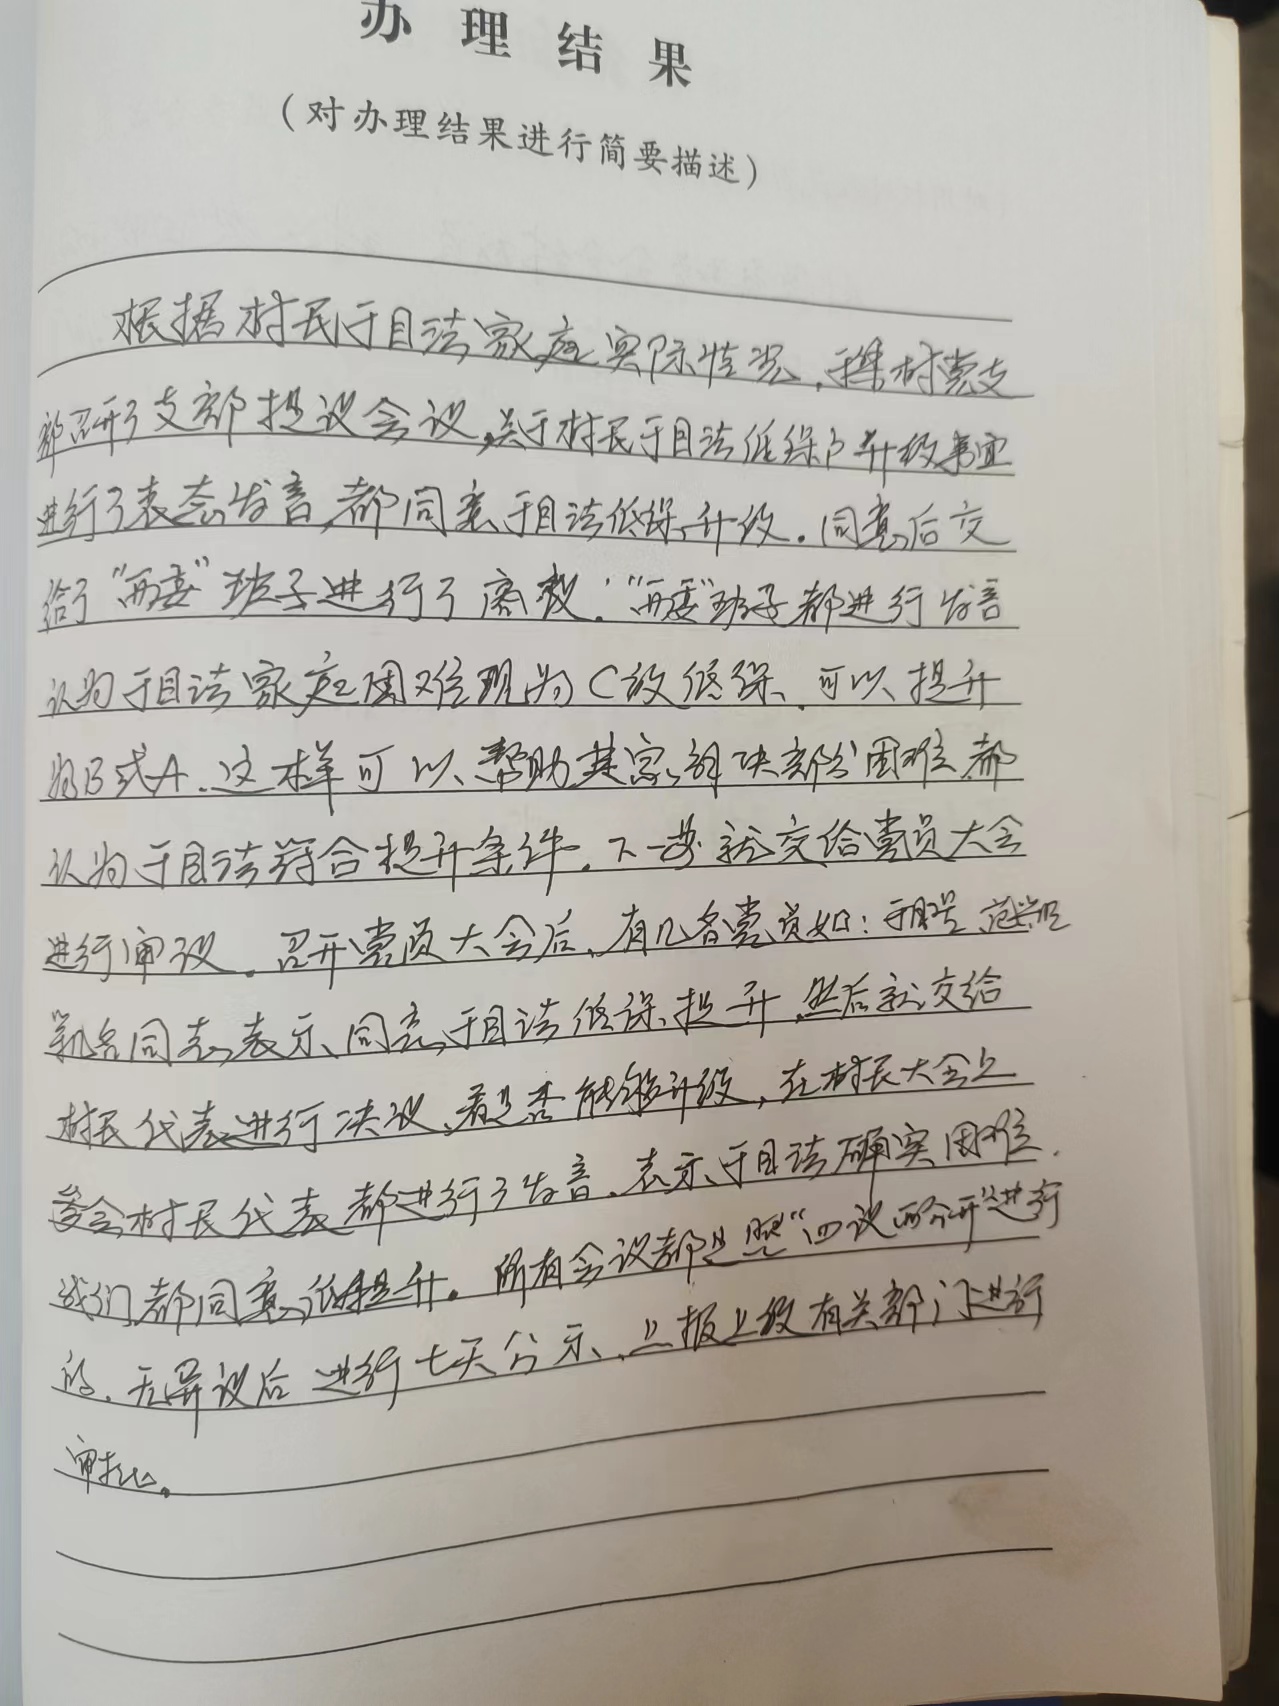 办理结果
(对办理结果进行简要描述)
根据村民于目法家庭实际情况,村党支
部召开了支部提议会议,关于村民于目法低保户升级事宜
进行了表态发言,都同意于目法低保升级.同意后交
给了“两委”班子进行了商议.“两委”班子都进行发言
认为于目法家庭困难现为C级低保、可以提升
为B或A.这样可以帮助其家解决部分困难都
认为于目法符合提升条件.下一步就交给党员大会
进行审议.召开党员大会后,有几名党员如:
等几名同志表示同意于目法低保提升,然后就交给
村民代表进行决议,看是否能够升级,在村民大会上
参会村民代表都进行了发言.表示于目法确实困难.
我们都同意低保提升.所有会议都是照“四议两公开”进行
的.无异议后进行七天公示、上报上级有关部门进行
审批。